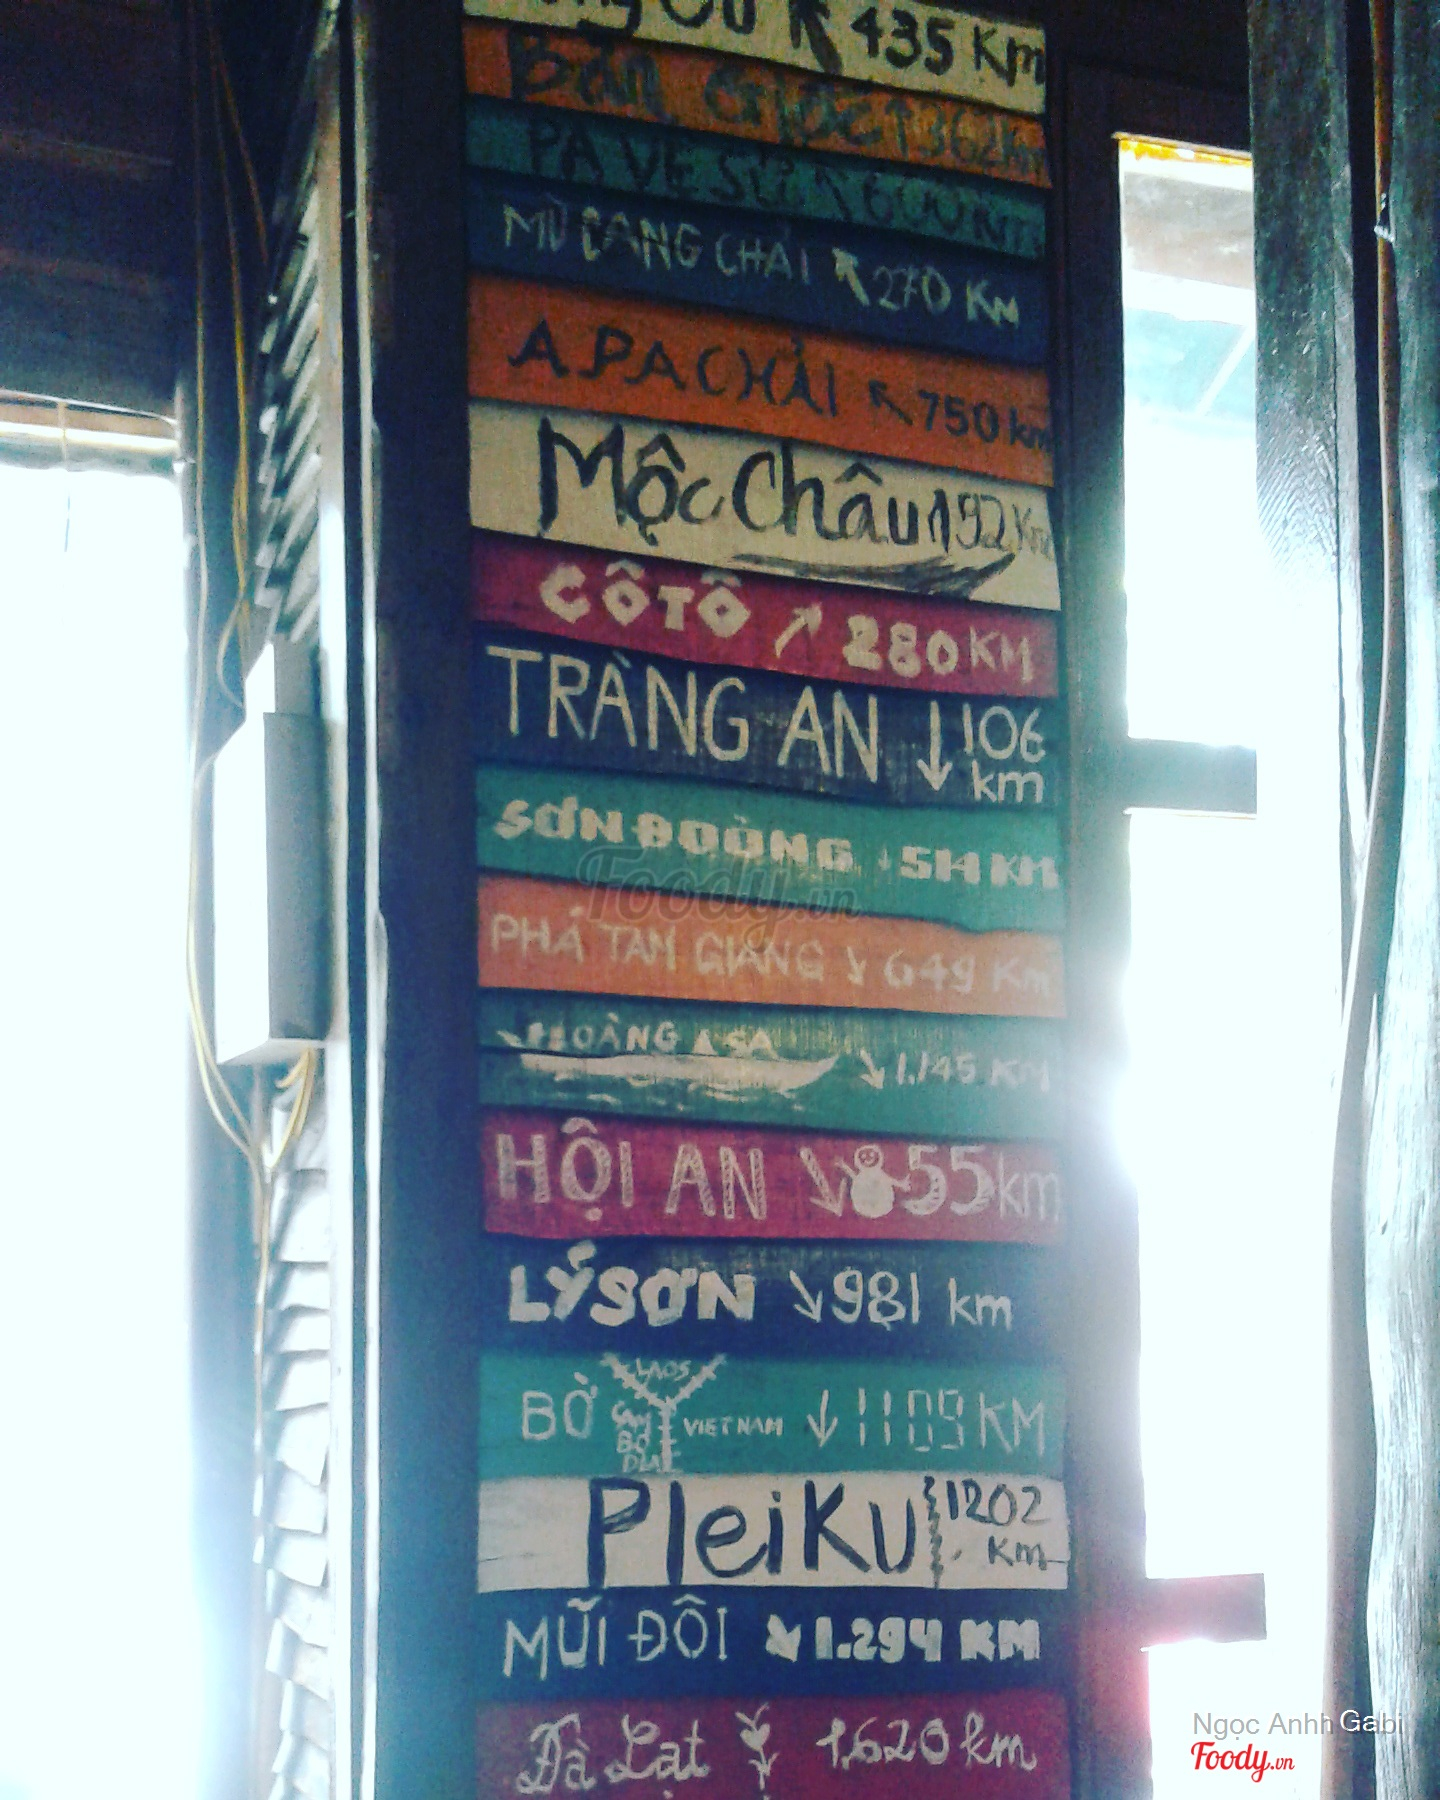 435 Km
Bản Giốc 1362km
PA VE SỬ
MÙ CANG CHẢI 270 KM
A PA CHẢI 750 km
Mộc Châu 192 Km
CÔ TÔ 280 KM
TRÀNG AN 106
km
SƠN ĐOÒNG 514 KM
PHÁ TAM GIANG 649 Km
HOÀNG SA 1.145 KM
HỘI AN 855 km
LÝ SƠN 981 km
LAOS
BỜ CAM VIETNAM 1109 KM
BO
DIA
PleiKu 1202
Km
MŨI ĐÔI 1.294 KM
Đà Lạt 1,620 km
Foody.vn
Ngọc Anhh Gabi
Foody.vn